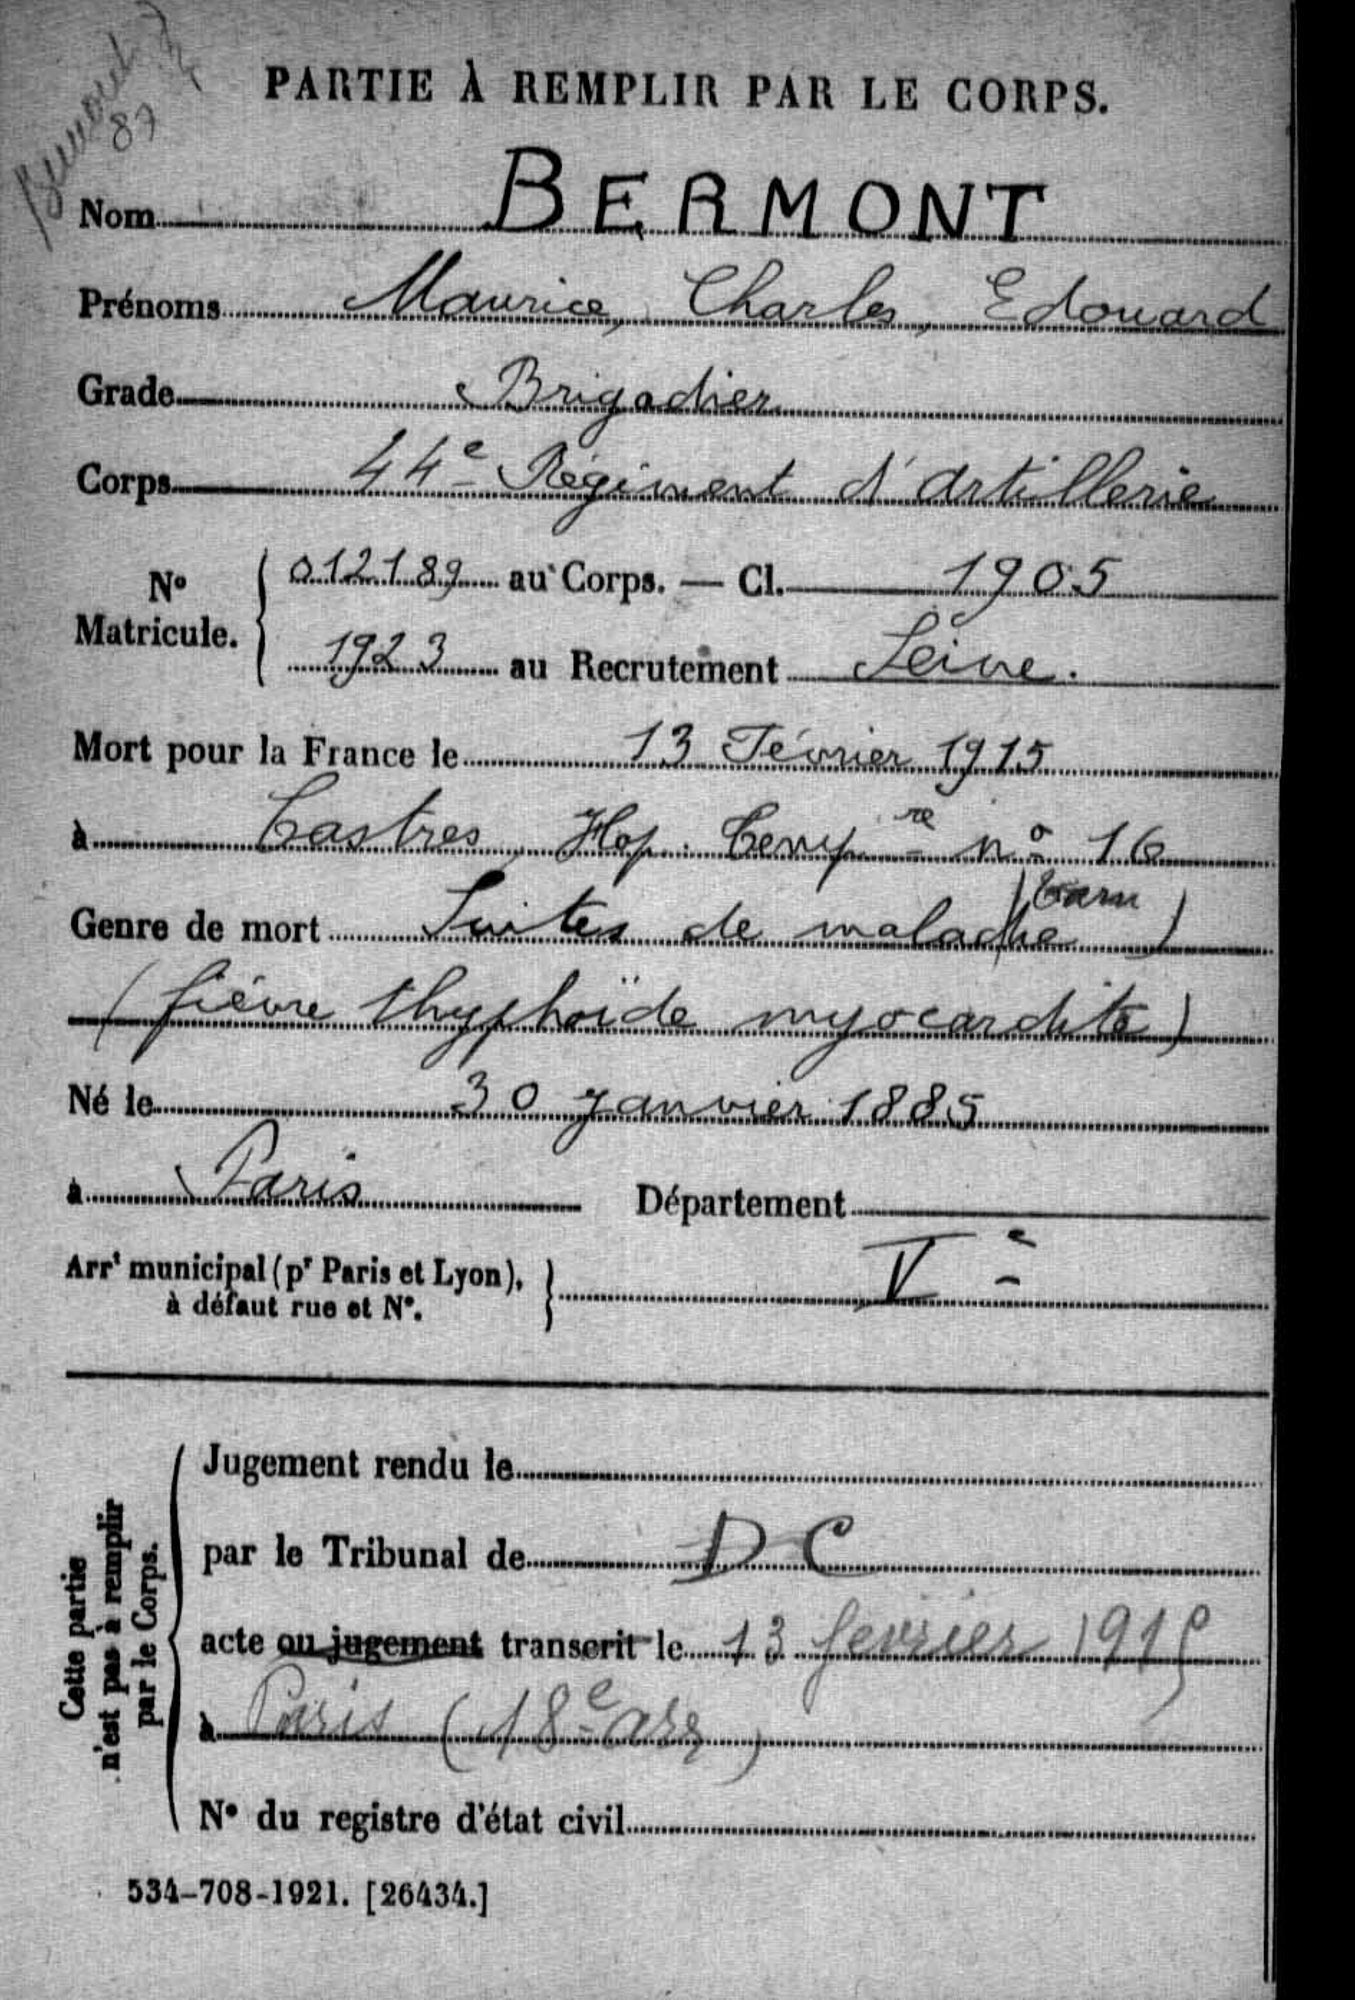 89
PARTIE À REMPLIR PAR LE CORPS.
Nom BERMONT
Prénoms Maurice, Charles, Edouard
Grade Brigadier
Corps 44e Régiment d'Artillerie
No Matricule. 012189 au Corps. — Cl. 1905
1923 au Recrutement Seine.
Mort pour la France le 13 Février 1915
à Castres, Hop. Temp re no 16
(Tarn)
Genre de mort Suites de maladie
(fièvre thyphoïde myocardite)
Né le 30 Janvier 1885
à Paris Département
Arrt municipal (pr Paris et Lyon), à défaut rue et No. Ve
Cette partie n'est pas à remplir par le Corps.
Jugement rendu le
par le Tribunal de DC
acte ou jugement transcrit le 13 fevrier 1915
à Paris (18e arr)
No du registre d'état civil
534-708-1921. [26434.]